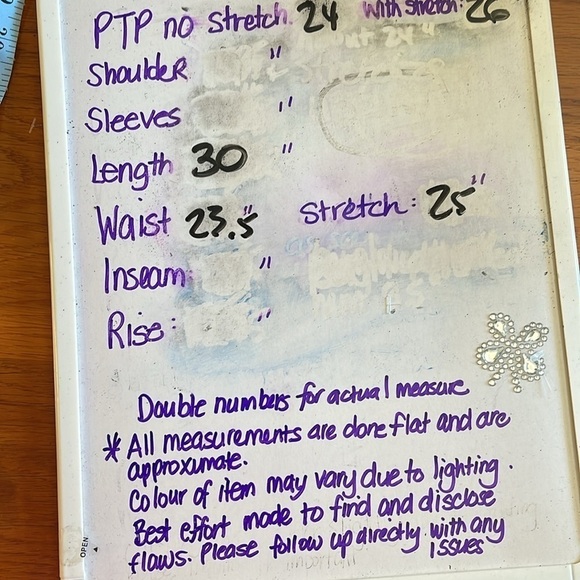 PTP no stretch. 24 with stretch: 26
Shoulder "
Sleeves "
Length 30 "
Waist 23.5" Stretch: 25"
Inseam: "
Rise: "
Double numbers for actual measure
* All measurements are done flat and are
approximate.
Colour of item may vary due to lighting.
Best effort made to find and disclose
flaws. Please follow up directly with any
issues
OPEN